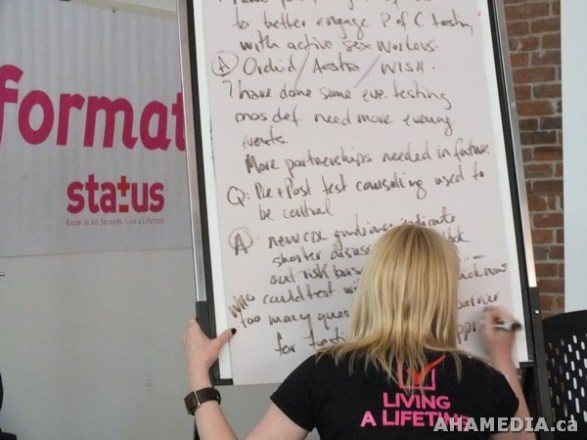 to better engage P of C testing
with active sex workers.
(A) Orchid / Aasha / WISH.
? have done some eve. testing
mos def need more evening
events.
More partnerships needed in future
Q: Pre + Post test counseling used to
be central
(A) new CPX guidelines indicate
shorter
out risk
who could test
too many ques barrier
for
format
status
Know in 60 Seconds. Live a Lifetime.
LIVING
A LIFETIME
AHAMEDIA.ca